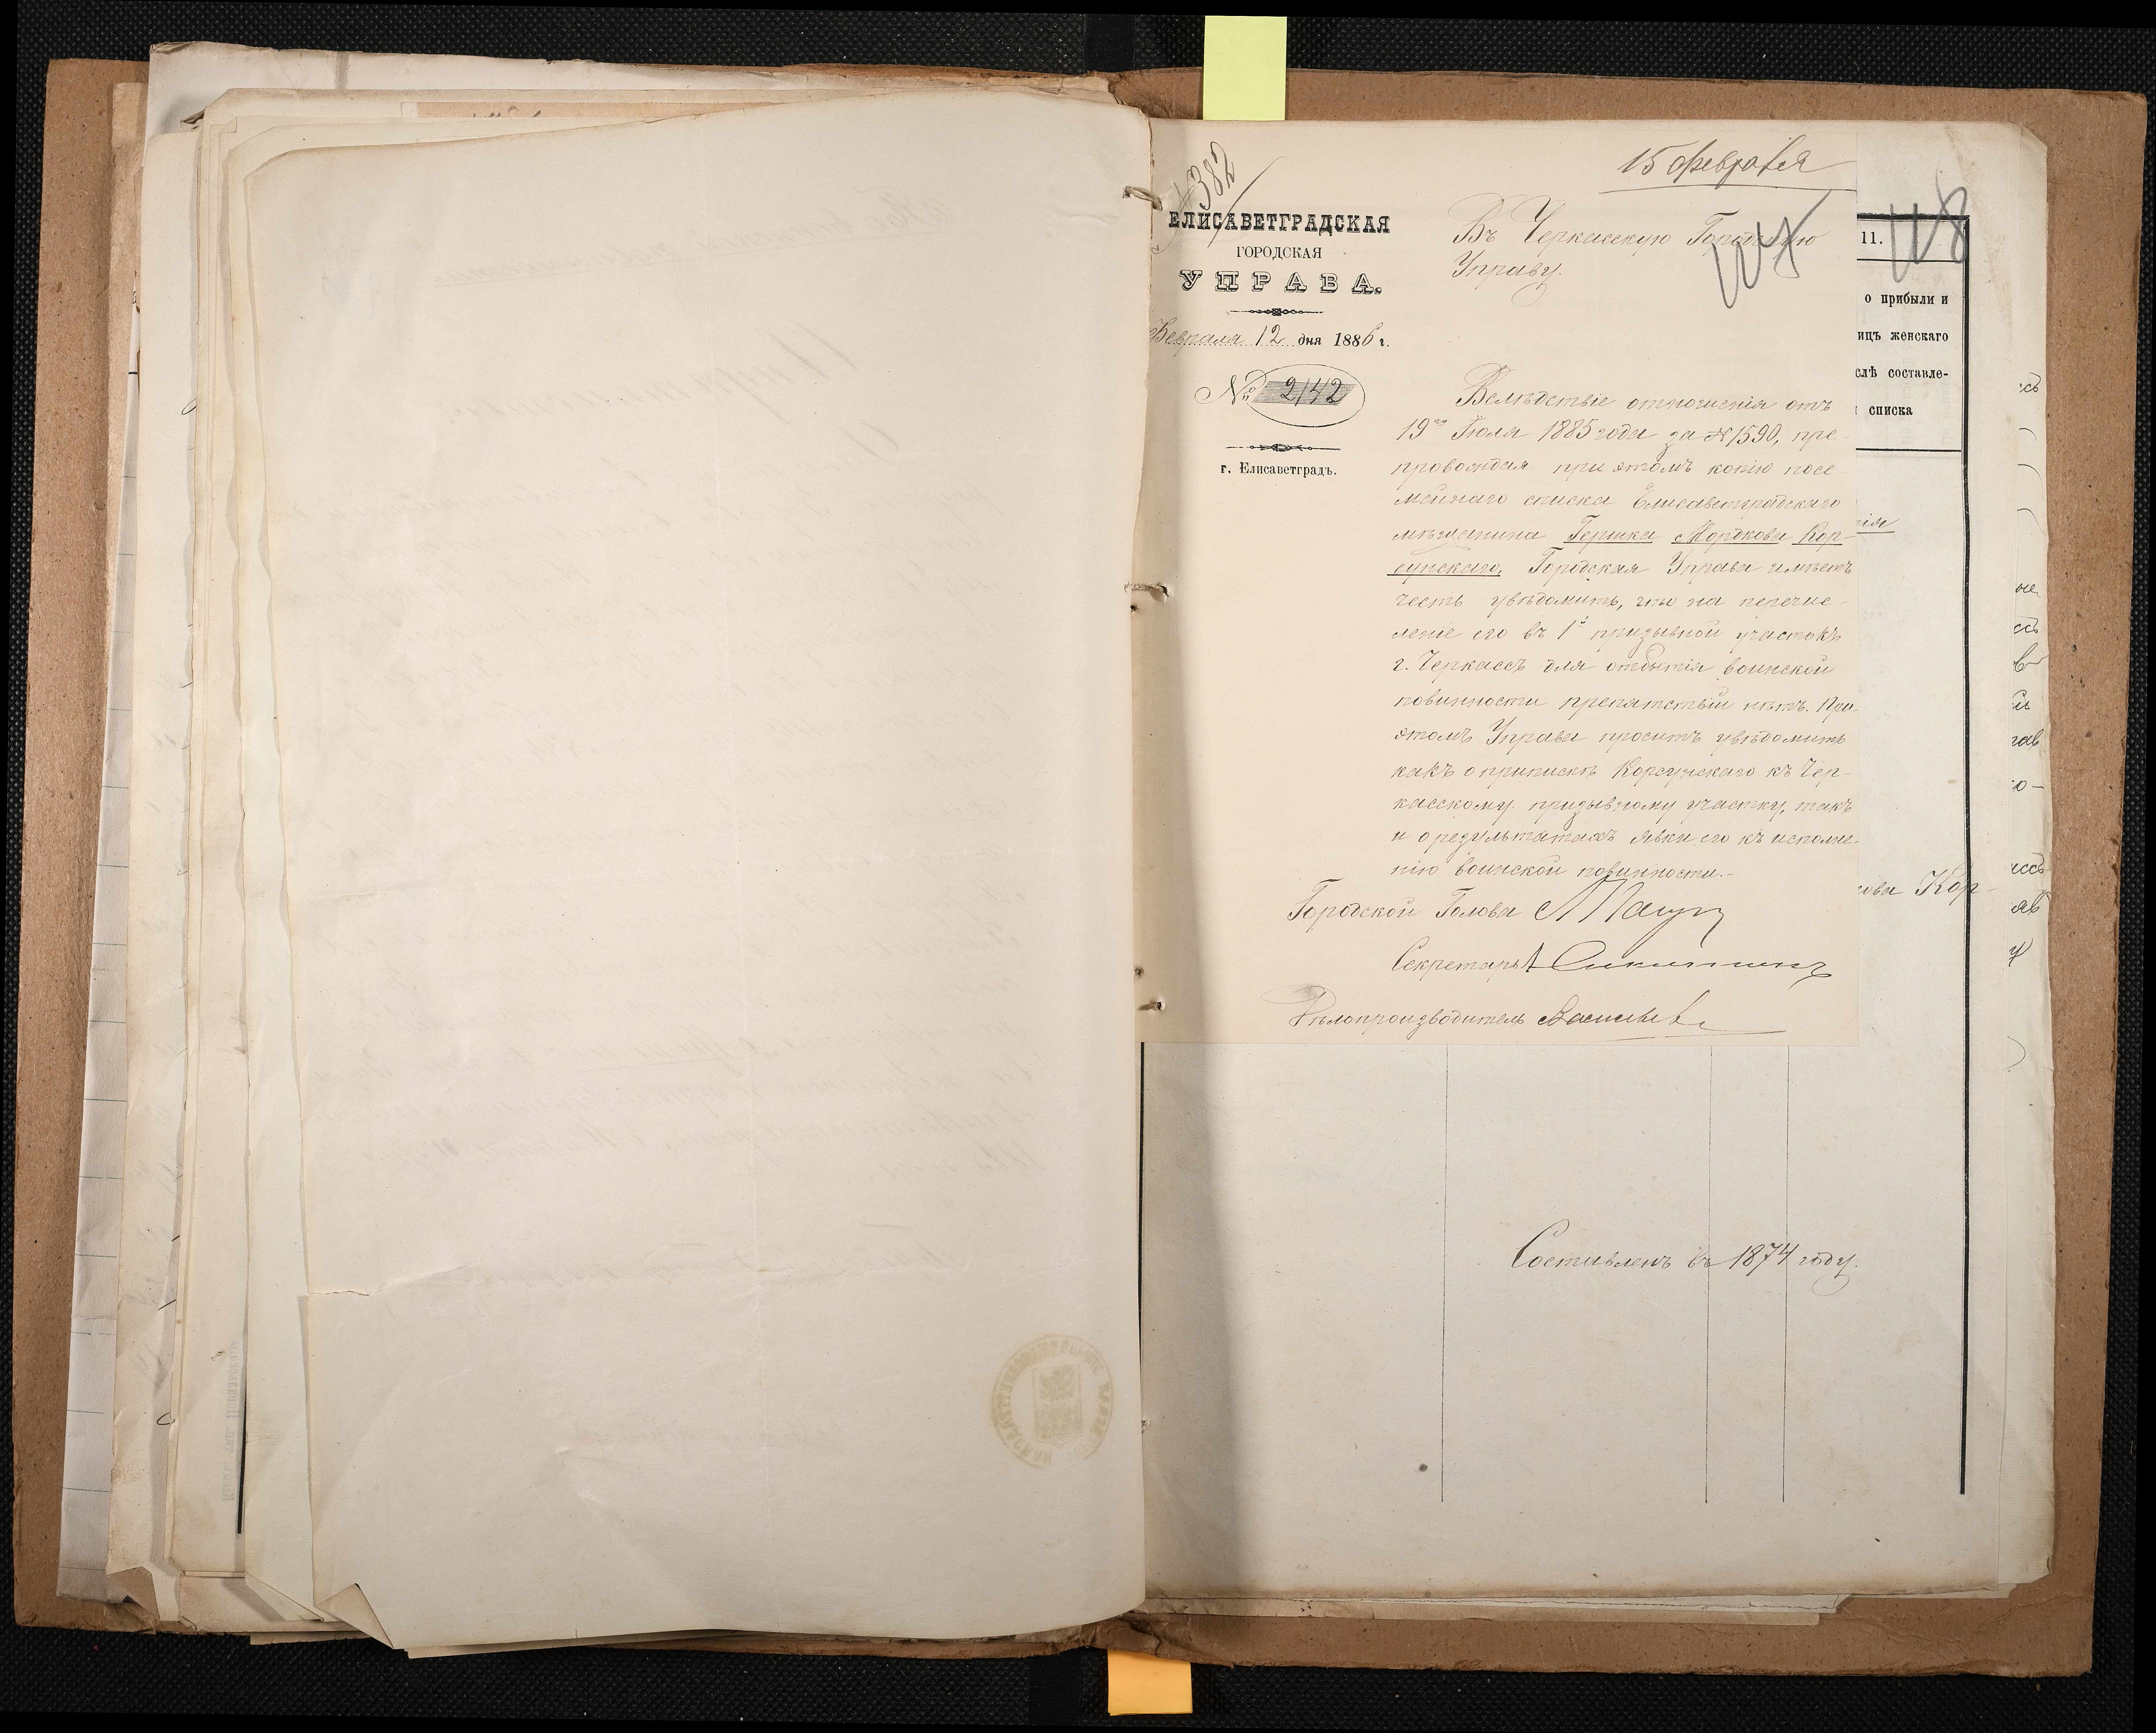 15 февраля
382
ЕЛИСАВЕТГРАДСКАЯ
ГОРОДСКАЯ
УПРАВА.
Февраля 12 дня 1886 г.
№ 2142
г. Елисаветградъ.
Въ Черкасскую Городскую
Управу.
118
Вслѣдствіе отношенія отъ
19го Іюля 1885 года за № 1590, пре-
провождая при этомъ копію посе
мейнаго списка Елисаветградскаго
мѣщанина Гершка Мордкова Кор-
сунскаго, Городская Управа имѣетъ
честь увѣдомить, что на перечис-
леніе его въ 1й призывной участокъ
г. Черкассъ для отбытія воинской
повинности препятствій нѣтъ. При
этомъ Управа проситъ увѣдомить
какъ о припискѣ Корсунскаго къ Чер-
касскому призывному участку, такъ
и о результатахъ явки его къ исполне-
нію воинской повинности.-
Городской Голова
Секретарь
Дѣлопроизводитель Васильевъ
11.
о прибыли и
ицъ женскаго
слѣ составле-
списка
ова Кор-
Составленъ въ 1874 году.